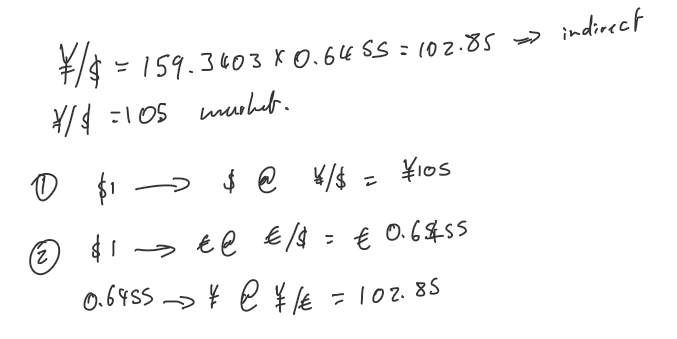 ¥/$ = 159.3403 × 0.6455 = 102.85 ⇒ indirect
¥/$ = 105 market.
① $1 → $ @ ¥/$ = ¥105
② $1 → € @ €/$ = € 0.6455
0.6455 → ¥ @ ¥/€ = 102.85